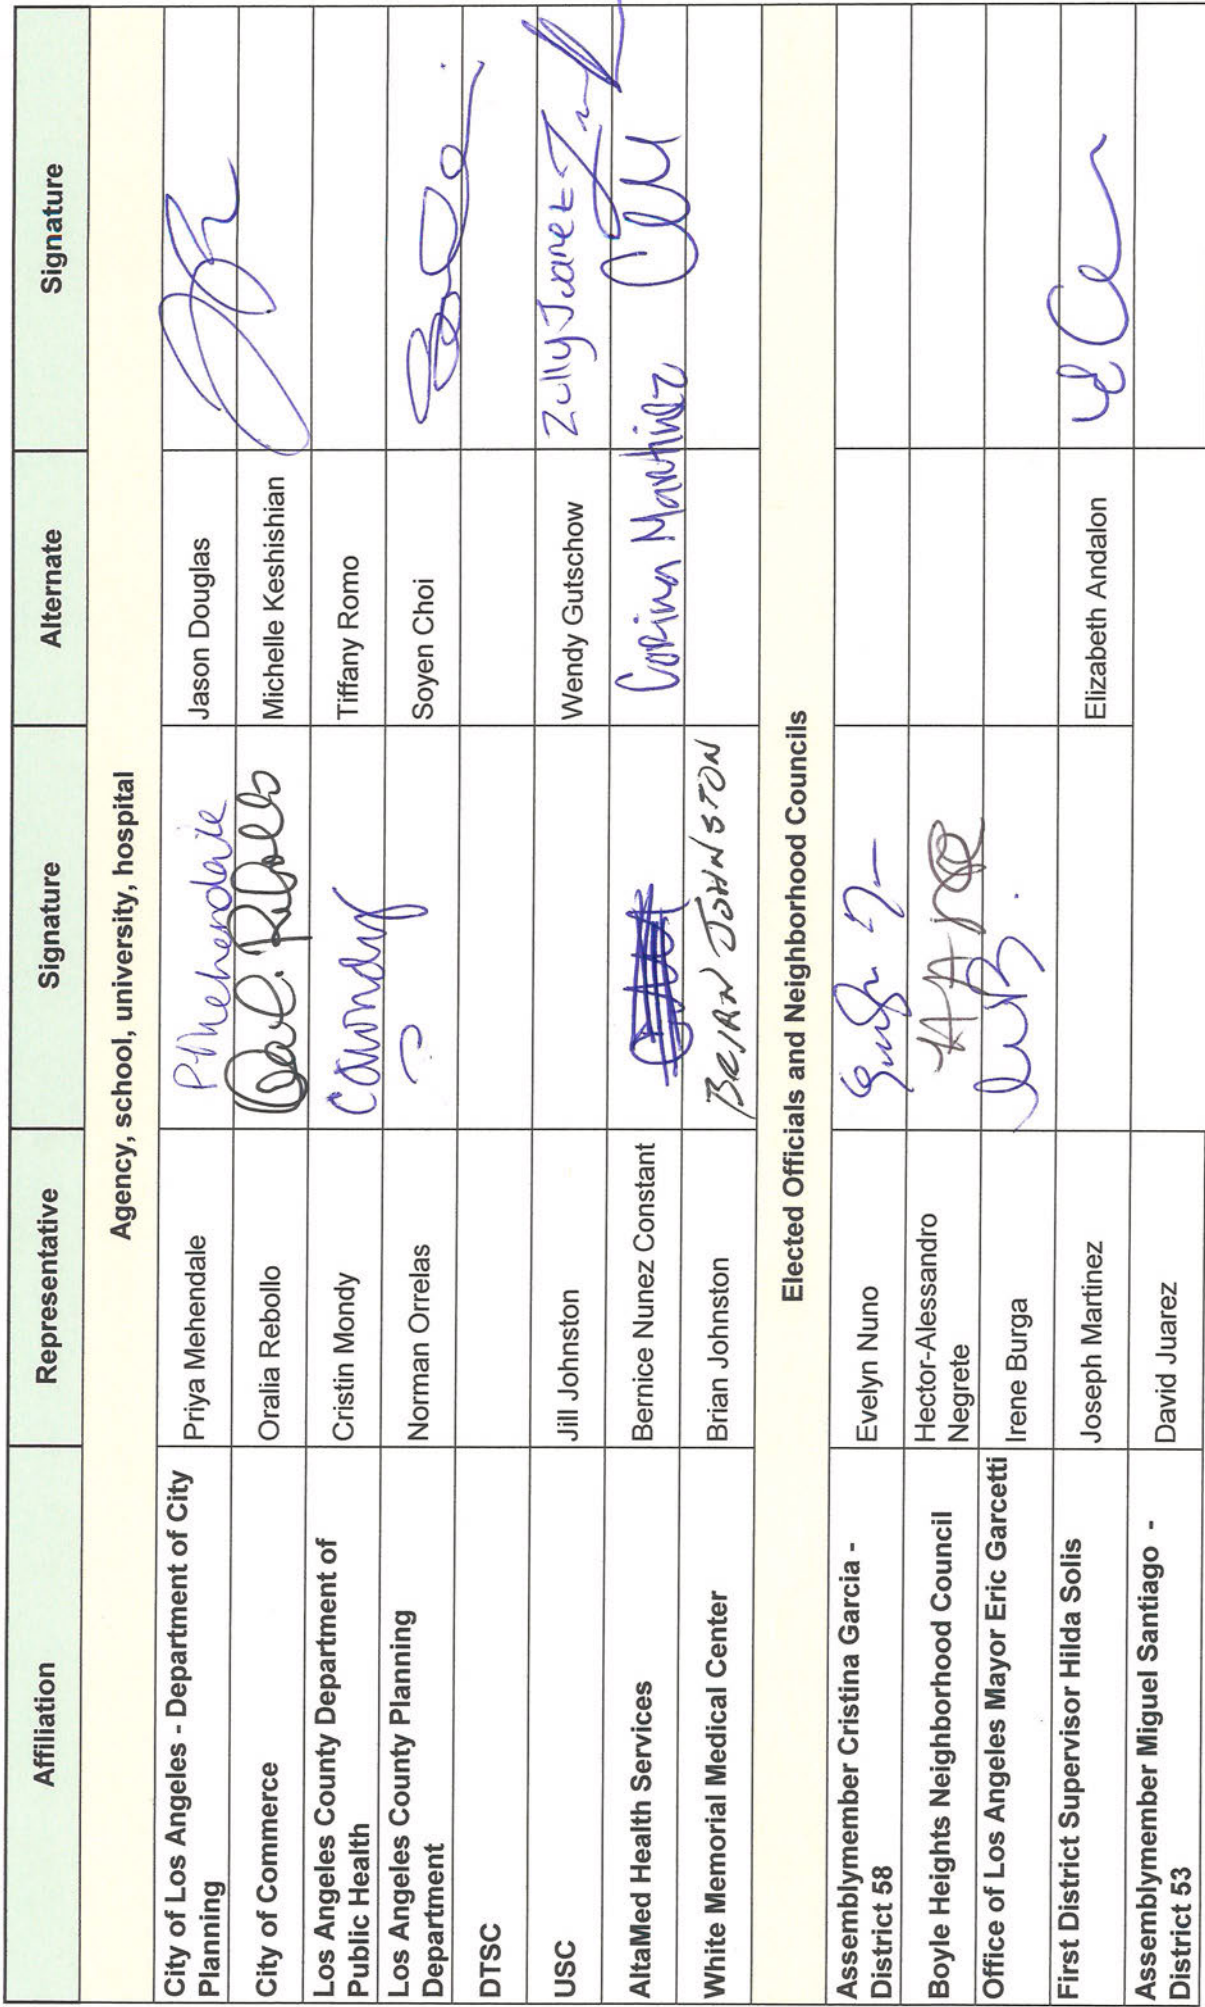 Affiliation Representative Signature Alternate Signature
Agency, school, university, hospital
City of Los Angeles - Department of City Planning Priya Mehendale PMehendale Jason Douglas
City of Commerce Oralia Rebollo Michelle Keshishian
Los Angeles County Department of Public Health Cristin Mondy Tiffany Romo
Los Angeles County Planning Department Norman Orrelas Soyen Choi
DTSC
USC Jill Johnston Wendy Gutschow Zully Juarez
AltaMed Health Services Bernice Nunez Constant Corina Martinez
White Memorial Medical Center Brian Johnston BRIAN JOHNSTON
Elected Officials and Neighborhood Councils
Assemblymember Cristina Garcia - District 58 Evelyn Nuno
Boyle Heights Neighborhood Council Hector-Alessandro Negrete
Office of Los Angeles Mayor Eric Garcetti Irene Burga
First District Supervisor Hilda Solis Joseph Martinez Elizabeth Andalon
Assemblymember Miguel Santiago - District 53 David Juarez